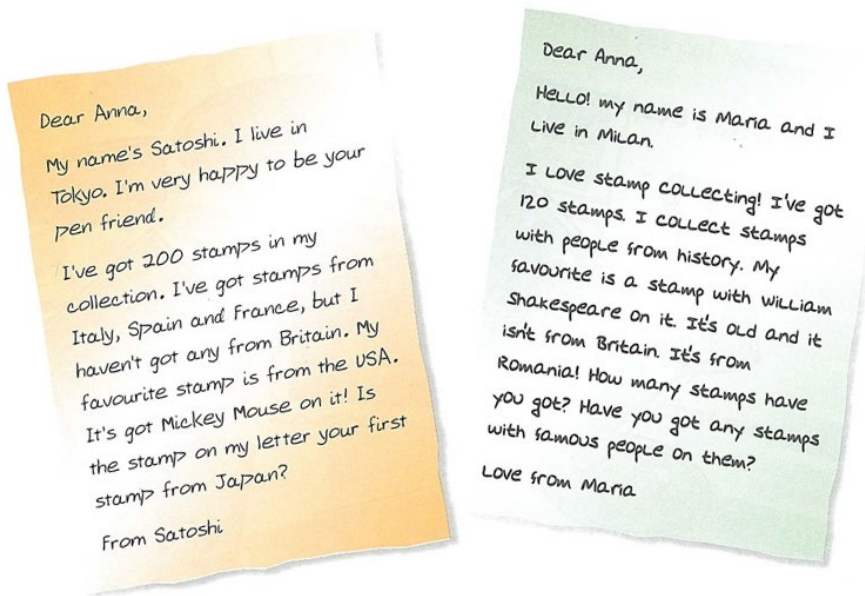 Dear Anna,
My name's Satoshi. I live in
Tokyo. I'm very happy to be your
pen friend.
I've got 200 stamps in my
collection. I've got stamps from
Italy, Spain and France, but I
haven't got any from Britain. My
favourite stamp is from the USA.
It's got Mickey Mouse on it! Is
the stamp on my letter your first
stamp from Japan?
From Satoshi
Dear Anna,
Hello! my name is Maria and I
live in Milan.
I love stamp collecting! I've got
120 stamps. I collect stamps
with people from history. My
favourite is a stamp with William
Shakespeare on it. It's old and it
isn't from Britain. It's from
Romania! How many stamps have
you got? Have you got any stamps
with famous people on them?
Love from Maria